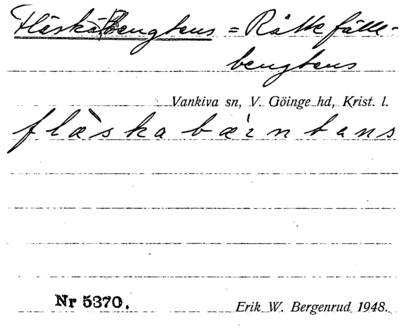 Fläskabengtens = Råttefälle-
bengtens
Vankiva sn, V. Göinge hd, Krist. l.
flàskabæ̀ntans
Nr 5370. Erik W. Bergenrud 1948.